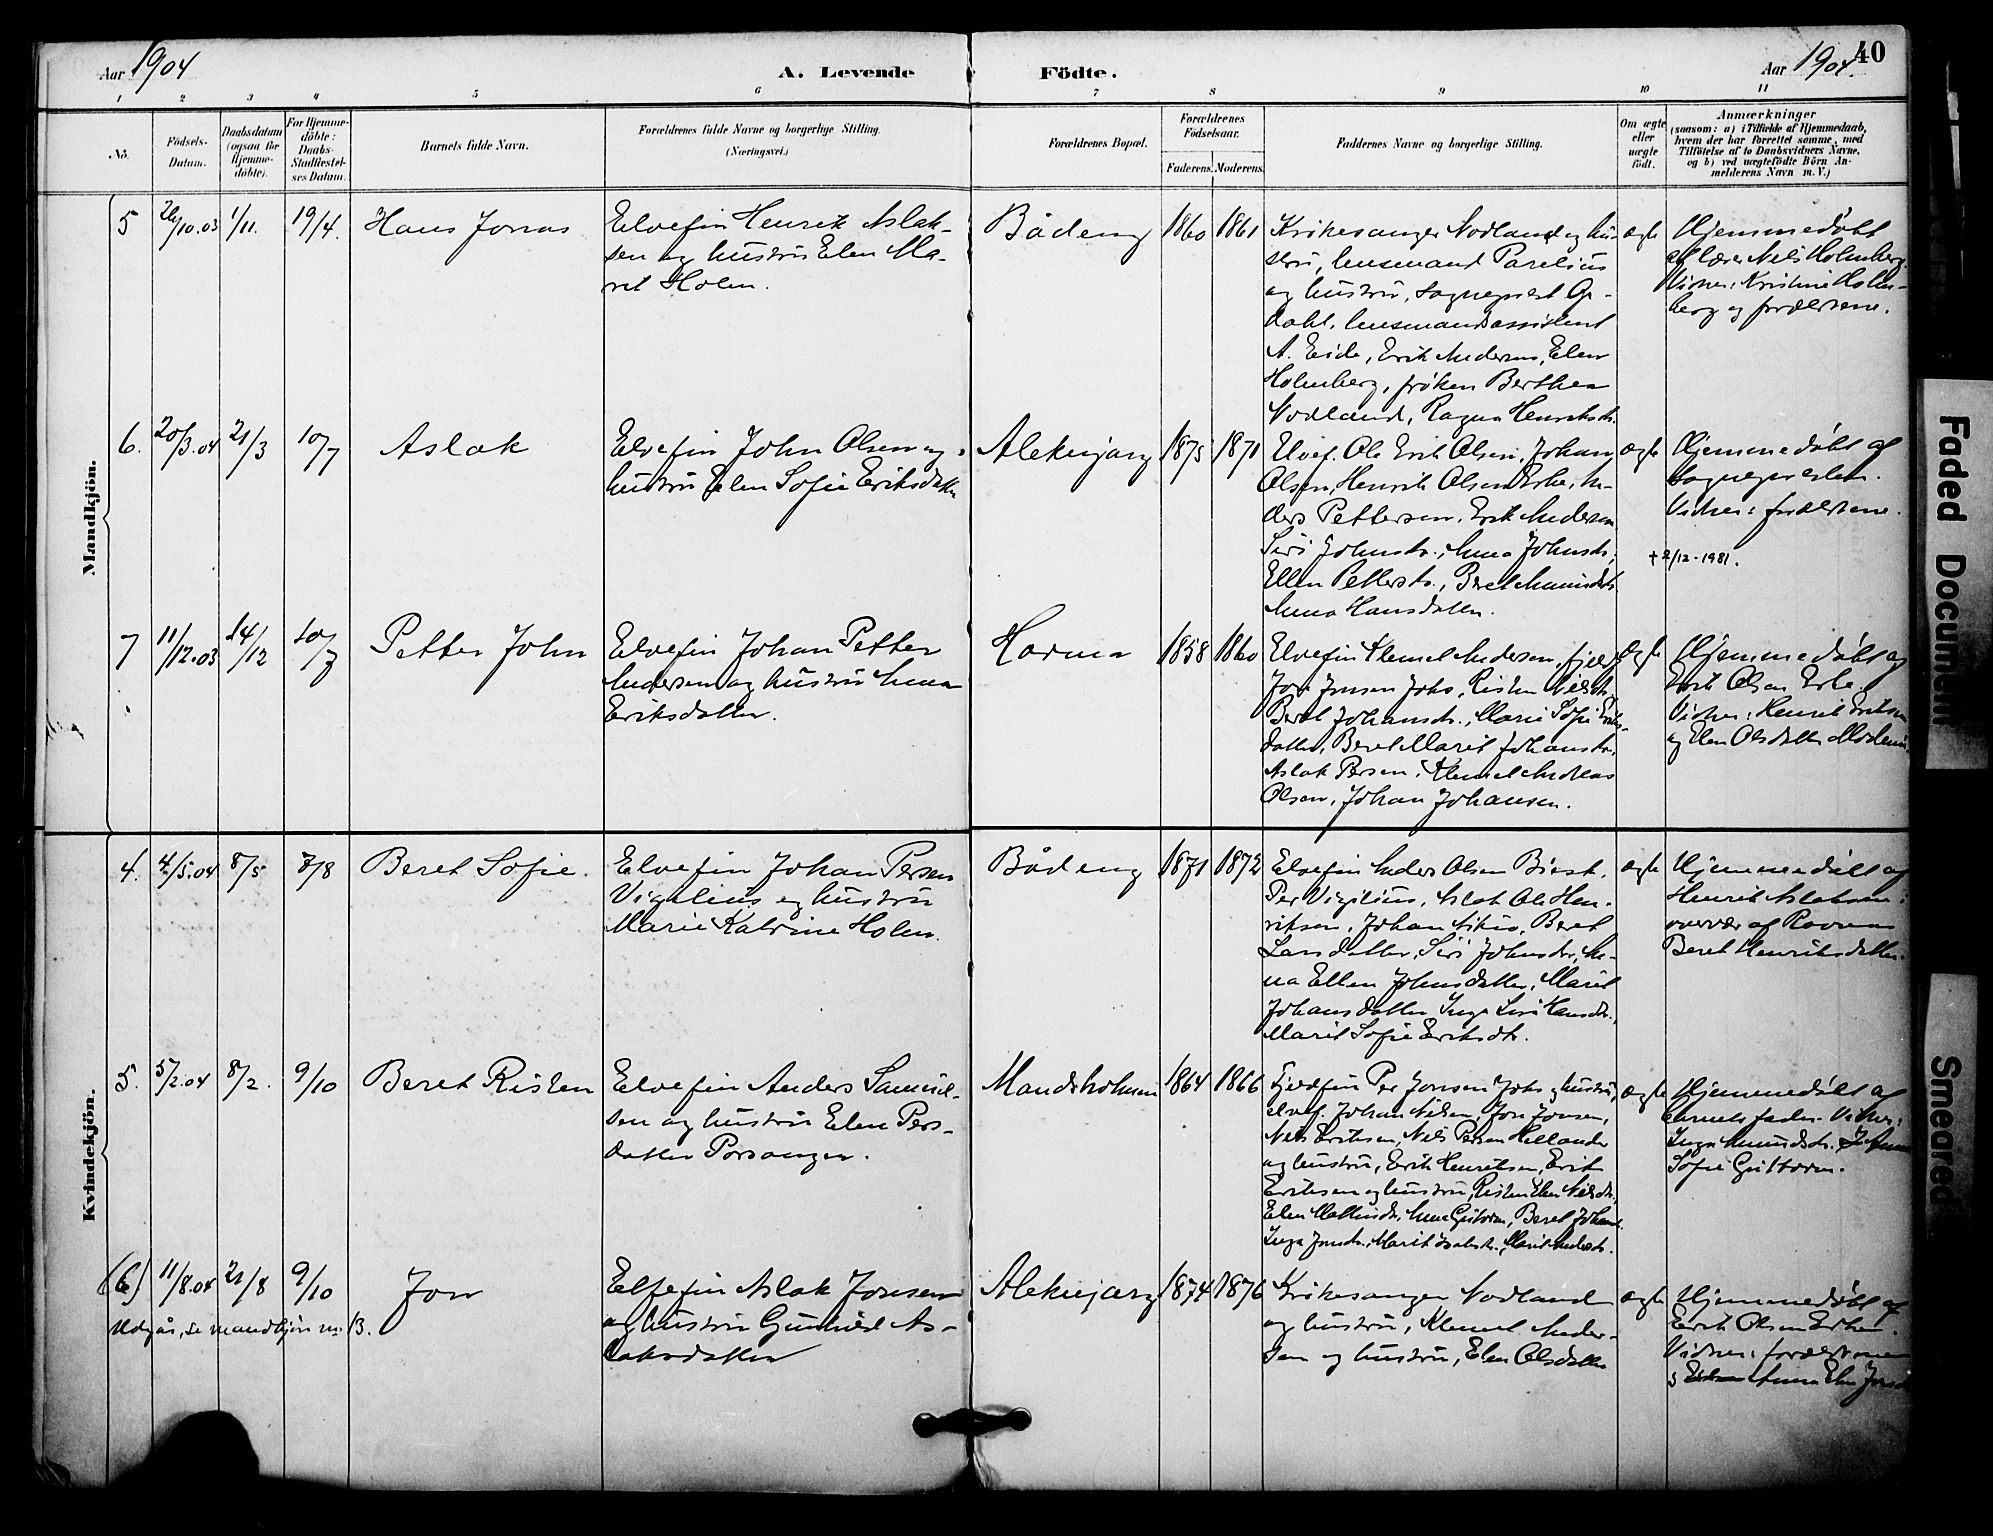 Aar 1904
A. Levende
Födte.
Aar 1904.
40
1 2 3 4 5 6 7 8 9 10 11
No.
Födsels-
Datum.
Daabsdatum
(ogsaa for
Hjemme-
döbte).
For Hjemme-
döbte:
Daabs-
Stadfæstel-
ses Datum.
Barnets fulde Navn.
Forældrenes fulde Navne og borgerlige Stilling.
(Næringsvei.)
Forældrenes Bopæl.
Forældrenes
Födselsaar.
Faderens. Moderens.
Faddernes Navne og borgerlige Stilling.
Om ægte
eller
uægte
födt.
Anmærkninger
(saasom: a) i Tilfælde af Hjemmedaab,
hvem der har forrettet samme, med
Tilföielse af to Daabsvidners Navne,
og b) ved uægtefödte Börn An-
melderens Navn m. V.)
Mandkjön.
5 26/10.03 1/11. 19/4. Hans Jonas
Elvefin Henrik Aslak-
sen og hustru Elen Ma-
rit Holm.
Bådeng 1860 1861
Kirkesanger Nodland og hu-
stru, lensmand Parelius
og hustru, sogneprest Op-
dahl, lensmandsassistent
A. Eide, Erik Andersen, Elen
Holmberg, fröken Berthea
Nodland, Ragna Henriksdr.
ægte
Hjemmedöbt
af lærer Nils Holmberg.
Vidner: Kristine Holm-
berg og forældrene.
6. 20/3.04 21/3 10/7 Aslak
Elvefin John Olsen og
hustru Elen Sofie Eriksdatter
Aleknjarg 1875 1871
Elvef. Ole Erik Olsen, Johan
Olsen, Henrik Olsen Erke, An-
ders Pettersen, Erik Andersen
Siri Johnsdr., Anna Johnsdr.,
Ellen Pettersdr., Beret
Anna Hansdatter.
ægte
Hjemmedöbt af
sognepresten.
Vidner: forældrene.
+ 2/12-1981.
7 11/12.03 14/12 10/7 Petter John
Elvefin Johan Petter
Andersen og hustru Anna
Eriksdatter.
Horma 1858 1860
Elvefin Klemet Andersen, fjeldf.
Jon Jonsen Joks, Risten Nilsdr.
Beret Johansdr., Marie Sofie Eriks-
datter, Beret Marit Johansdr.
Aslak Persen, Klemet Andreas
Olsen, Johan Johansen.
ægte
Hjemmedöbt af
Erik Olsen Erke.
Vidner: Henrik Eriksen
og Elen Olsdatter
Kvindekjön.
4. 4/5.04 8/5 7/8 Beret Sofie.
Elvefin Johan Persen
Vigelius og hustru
Marie Katrine Holm.
Bådeng 1871 1872
Elvefin Anders Olsen
Per Vigilius, Aslak Ole Hen-
riksen, Johan Nikis, Beret
Larsdatter, Siri Johnsdr, An-
na Ellen Johnsdatter, Marit
Johansdatter Inga Siri Hansdr.,
Marit Sofie Eriksdr.
ægte
Hjemmedöbt af
Henrik Aslaksen i
overvær af Ravna
Beret Henriksdatter.
5. 5/2.04 8/2. 9/10 Beret Risten
Elvefin Anders Samuel-
sen og hustru Elen Pers-
datter Porsanger.
Mandsholmen 1864 1866
Fjeldfin Per Jonsen Joks og hustru,
elvef. Johan Nilsen, Jon Jonsen,
Nils Eriksen, Nils Persen Hellander
og hustru, Erik Henriksen, Erik
Eriksen og hustru, Risten Elen Nilsdr.,
Elen Mathisdr., Anna Guttorm, Beret Johansdr.
Inga Jonsdr., Marit, Marit Andersdr.
ægte
Hjemmedöbt af
barnets fader. Vidner:
Inga Amundsdr.
Sofie Guttorm.
(6) 11/8.04 21/8 9/10 Jon
Udgår, se mandkjön nr. 13.
Elvefin Aslak Jonsen
og hustru Gunhild As-
laksdatter
Aleknjarg 1874 1876
Kirkesanger Nodland
og hustru, Klemet Ander-
sen og hustru, Elen Olsdatter
ægte
Hjemmedöbt af
Erik Olsen Erke.
Vidner: forældrene
Anna Elen Jonsdr
Faded Document
Smeared